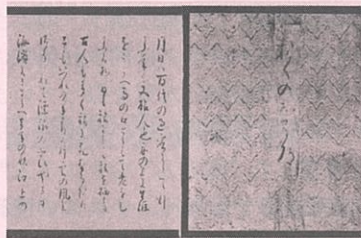 おくのほそ道
月日は百代の過客にして行
かふ年も又旅人也舟の上に生涯
をうかへ馬の口とらえて老をむ
かふる物は日々旅にして旅を栖とす
古人も多く旅に死せるあり
予もいつれの年よりか片雲の風に
さそはれて漂泊の思ひやます
海濱にさすらへて去年の秋江上の